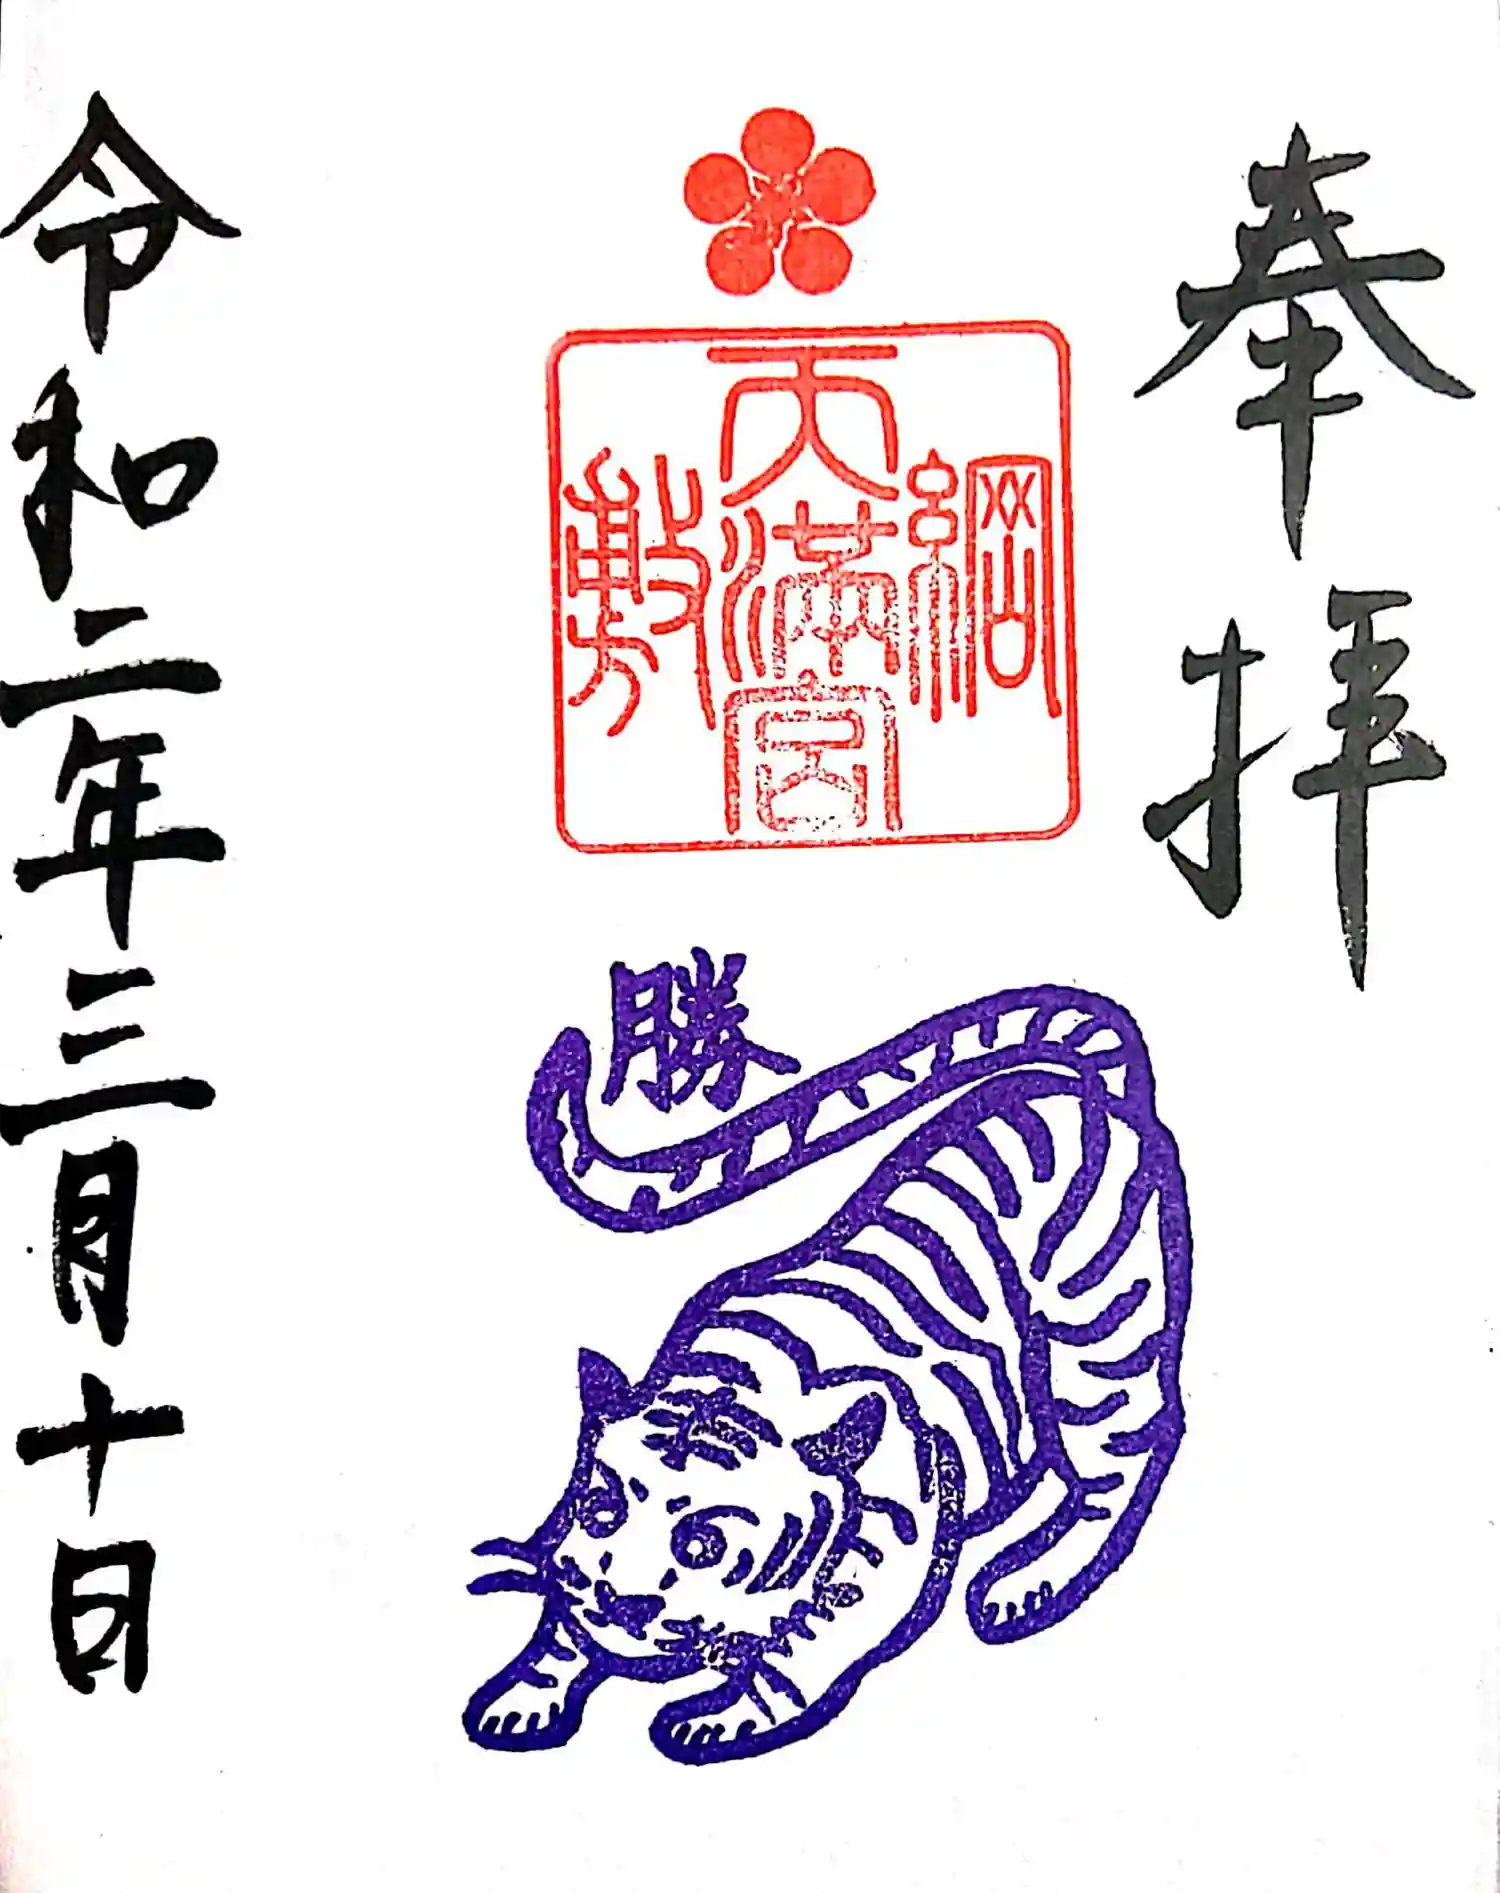 奉拝
綱敷天満宮
勝
令和二年三月十日